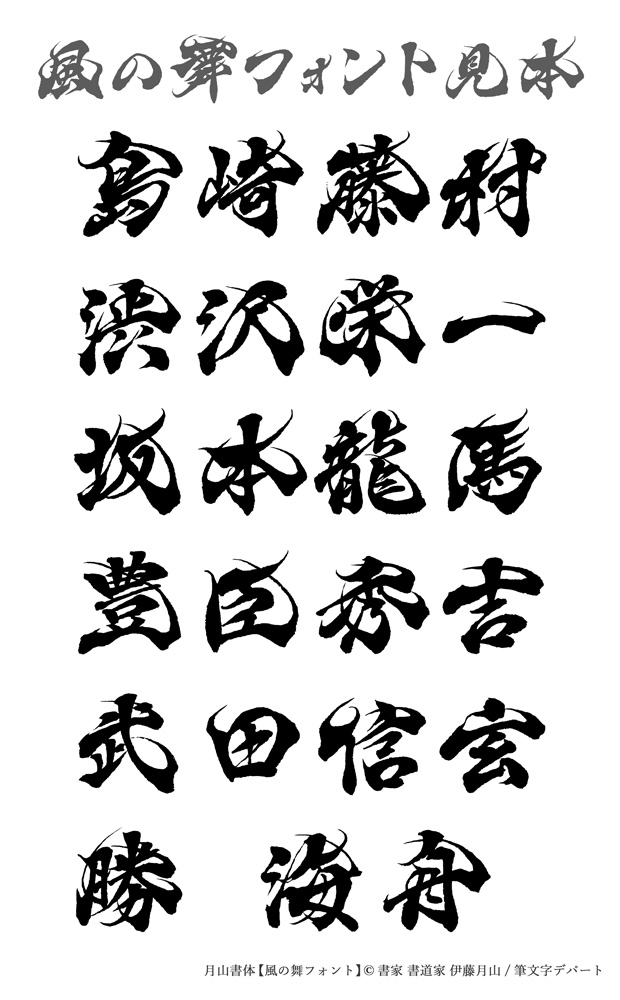 風の舞フォント見本
島崎藤村
渋沢栄一
坂本龍馬
豊臣秀吉
武田信玄
勝 海舟
月山書体【風の舞フォント】© 書家 書道家 伊藤月山 / 筆文字デパート